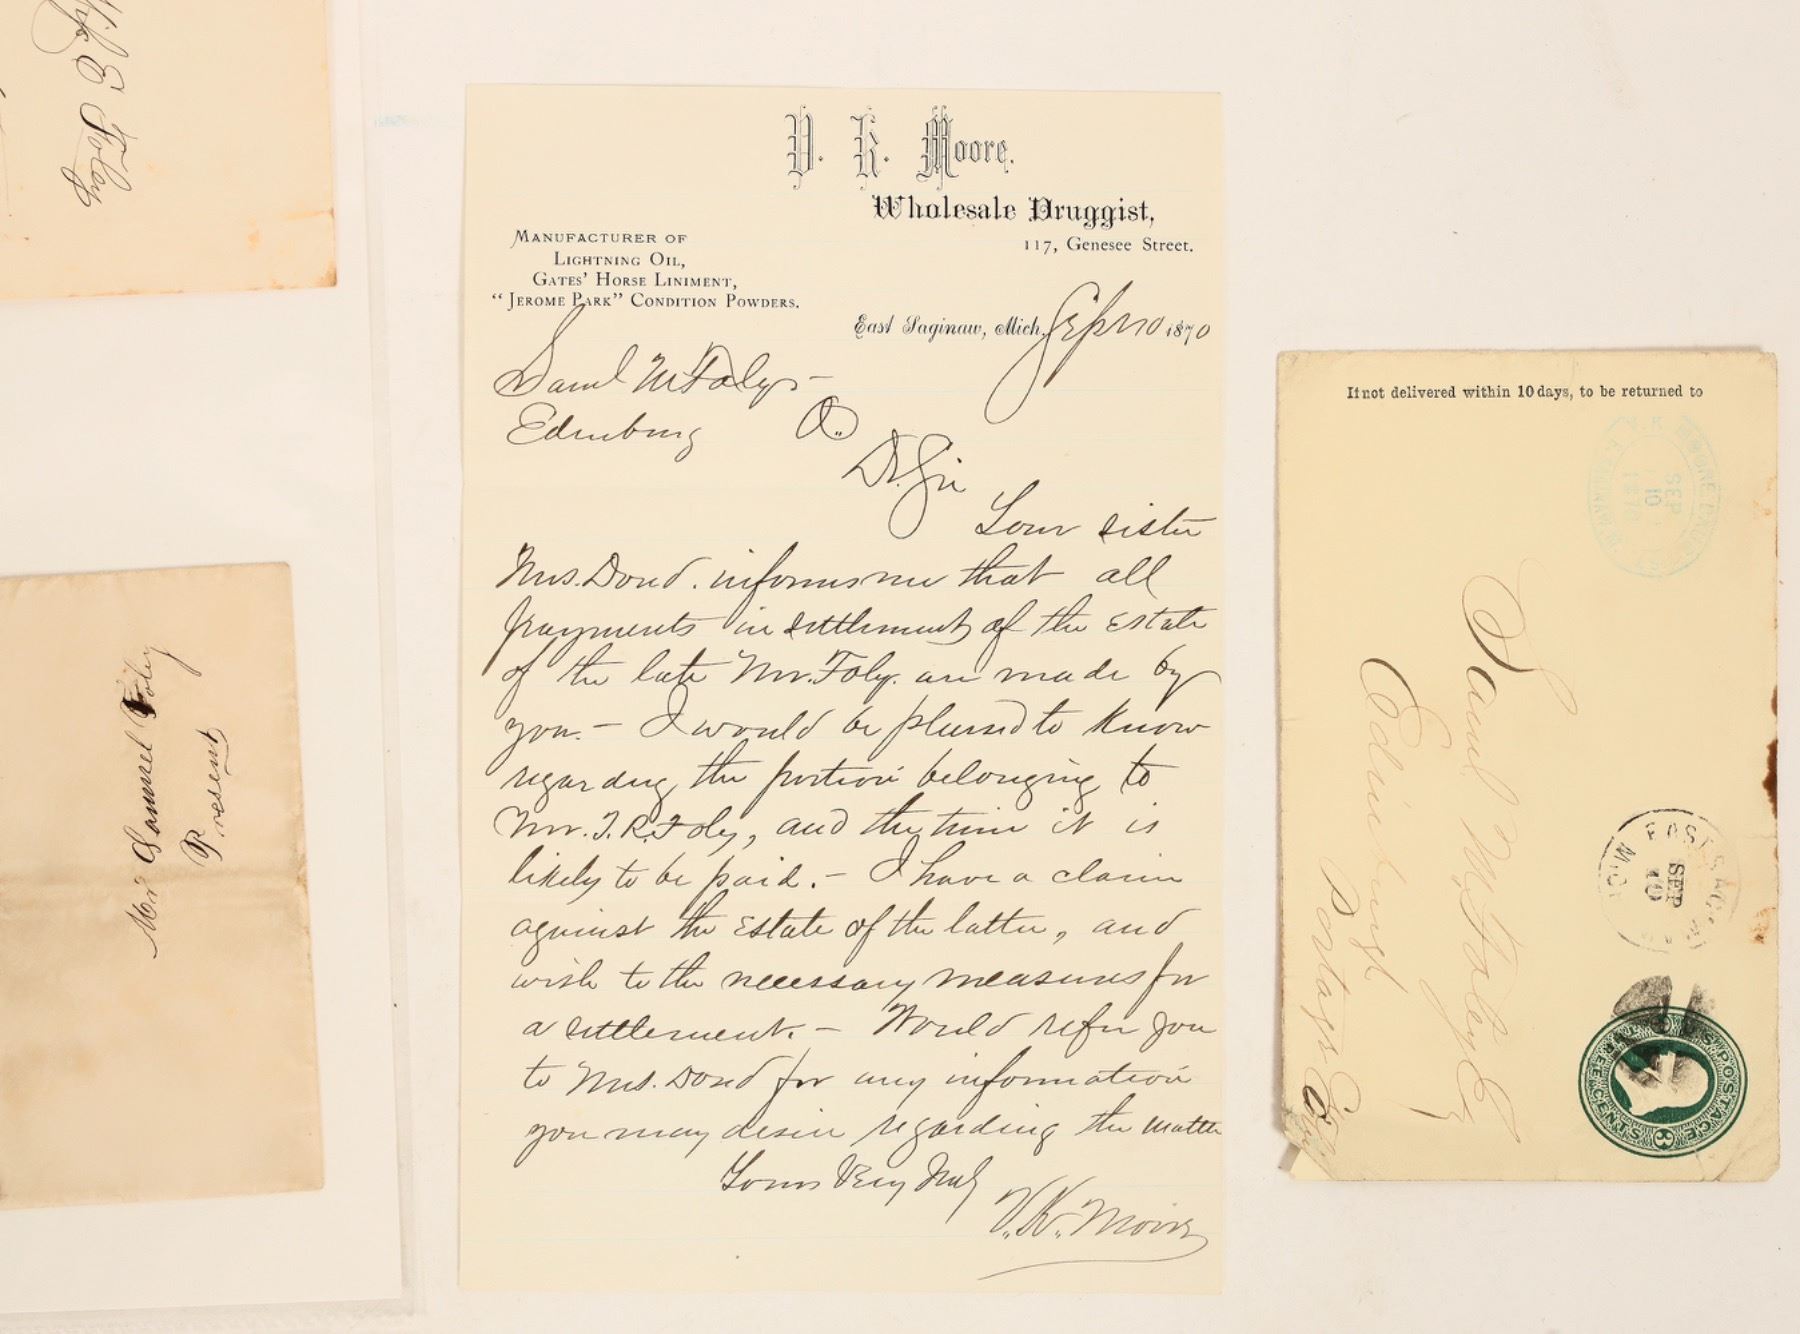 E. Foley
Mr Samuel Foley
Present
V. K. Moore.
Wholesale Druggist,
117, Genesee Street.
MANUFACTURER OF
LIGHTNING OIL,
GATES' HORSE LINIMENT,
"JEROME PARK" CONDITION POWDERS.
East Saginaw, Mich. Sept 10 1870
Saml M Foly -
Edinburg O.
Dr. Sir
Your sister
Mrs. Doud. informs me that all
payments in settlement of the Estate
of the late Mr. Foly. are made by
you. - I would be pleased to know
regarding the portion belonging to
Mr. J. R. Foly, and the time it is
likely to be paid. - I have a claim
against the Estate of the latter, and
wish to the necessary measures for
a settlement. - Would refer you
to Mrs. Doud for any information
you may desire regarding the matter
Yours Very Truly
V. K. Moore
If not delivered within 10 days, to be returned to
V. K. MOORE
SEP
10
1870
SAGINAW, M.
Samuel M. Foley Esq
Edinburgh
Portage Co.
EAST SAGINAW
SEP
10
MICH
U.S. POSTAGE
3 THREE CENTS 3